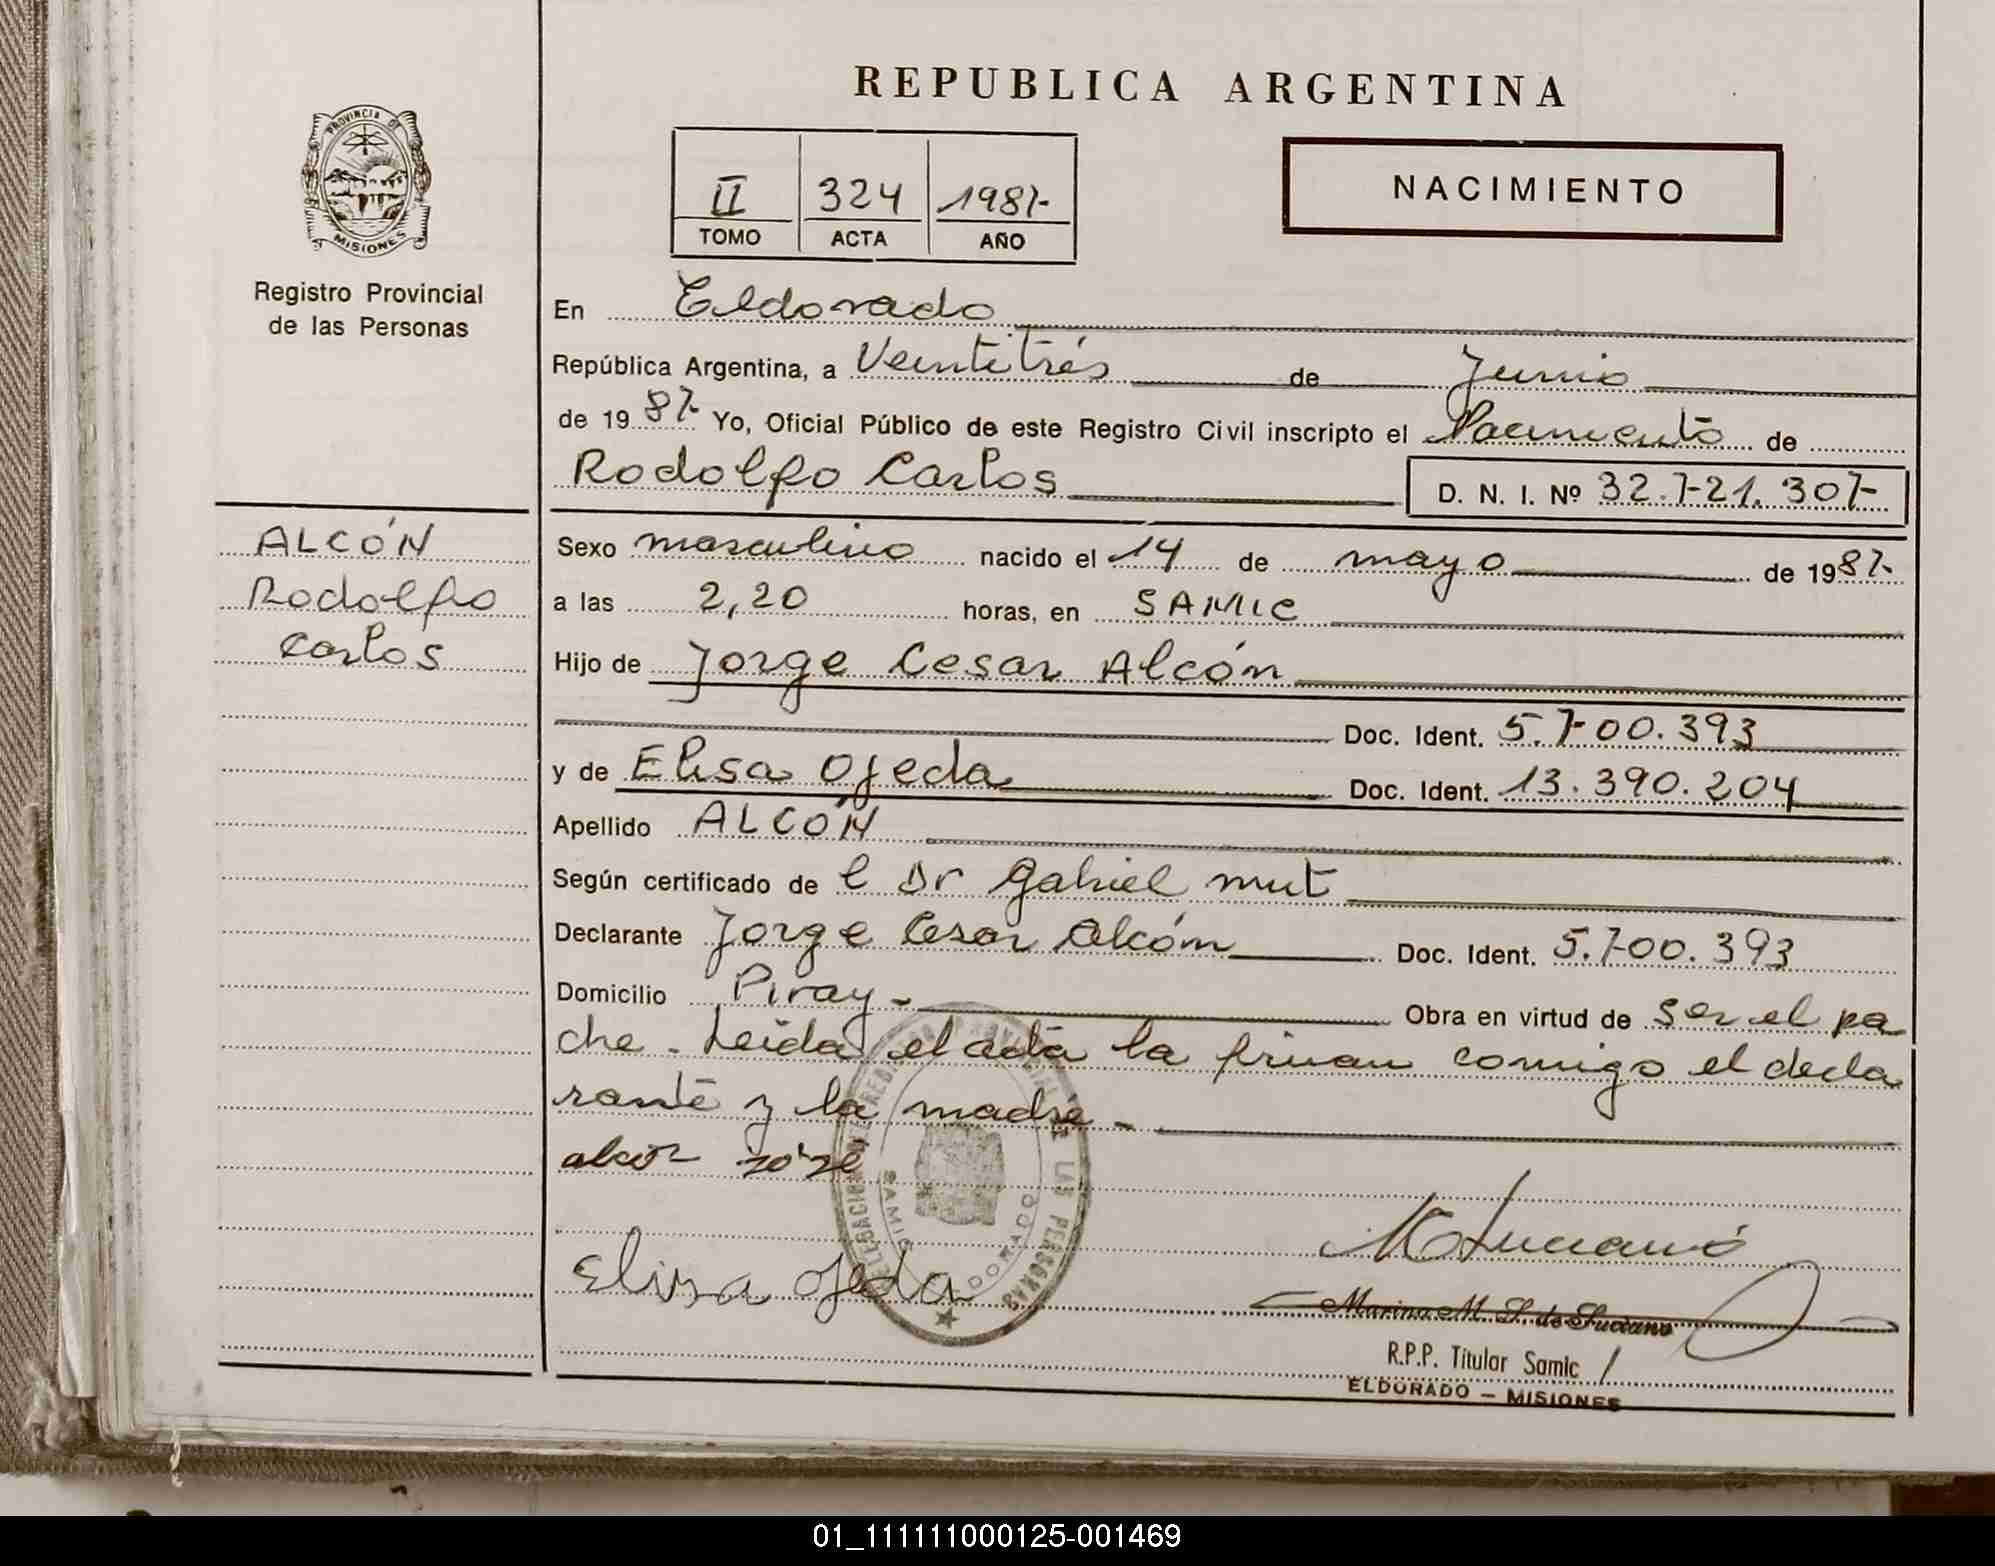 REPUBLICA ARGENTINA
PROVINCIA DE
MISIONES
Registro Provincial
de las Personas
II 324 1987-
TOMO ACTA AÑO
NACIMIENTO
En Eldorado
República Argentina, a Veintitrés de Junio
de 1987- Yo, Oficial Público de este Registro Civil inscripto el Nacimiento de
Rodolfo Carlos D. N. I. Nº 32.721.307-
ALCÓN
Rodolfo
Carlos
Sexo masculino nacido el 14 de mayo de 1987-
a las 2,20 horas, en SAMIC
Hijo de Jorge Cesar Alcón
Doc. Ident. 5.700.393
y de Elisa Ojeda Doc. Ident. 13.390.204
Apellido ALCÓN
Según certificado de l Dr Gabriel mut
Declarante Jorge Cesar Alcón Doc. Ident. 5.700.393
Domicilio Piray - Obra en virtud de ser el pa
dre. Leida el acta la firman conmigo el decla
rante y la madre -
alcon
Elisa Ojeda
SAMIC
LAS PERSONAS
Marina M. S. de Luciano
R.P.P. Titular Samic
ELDORADO - MISIONES
01_111111000125-001469